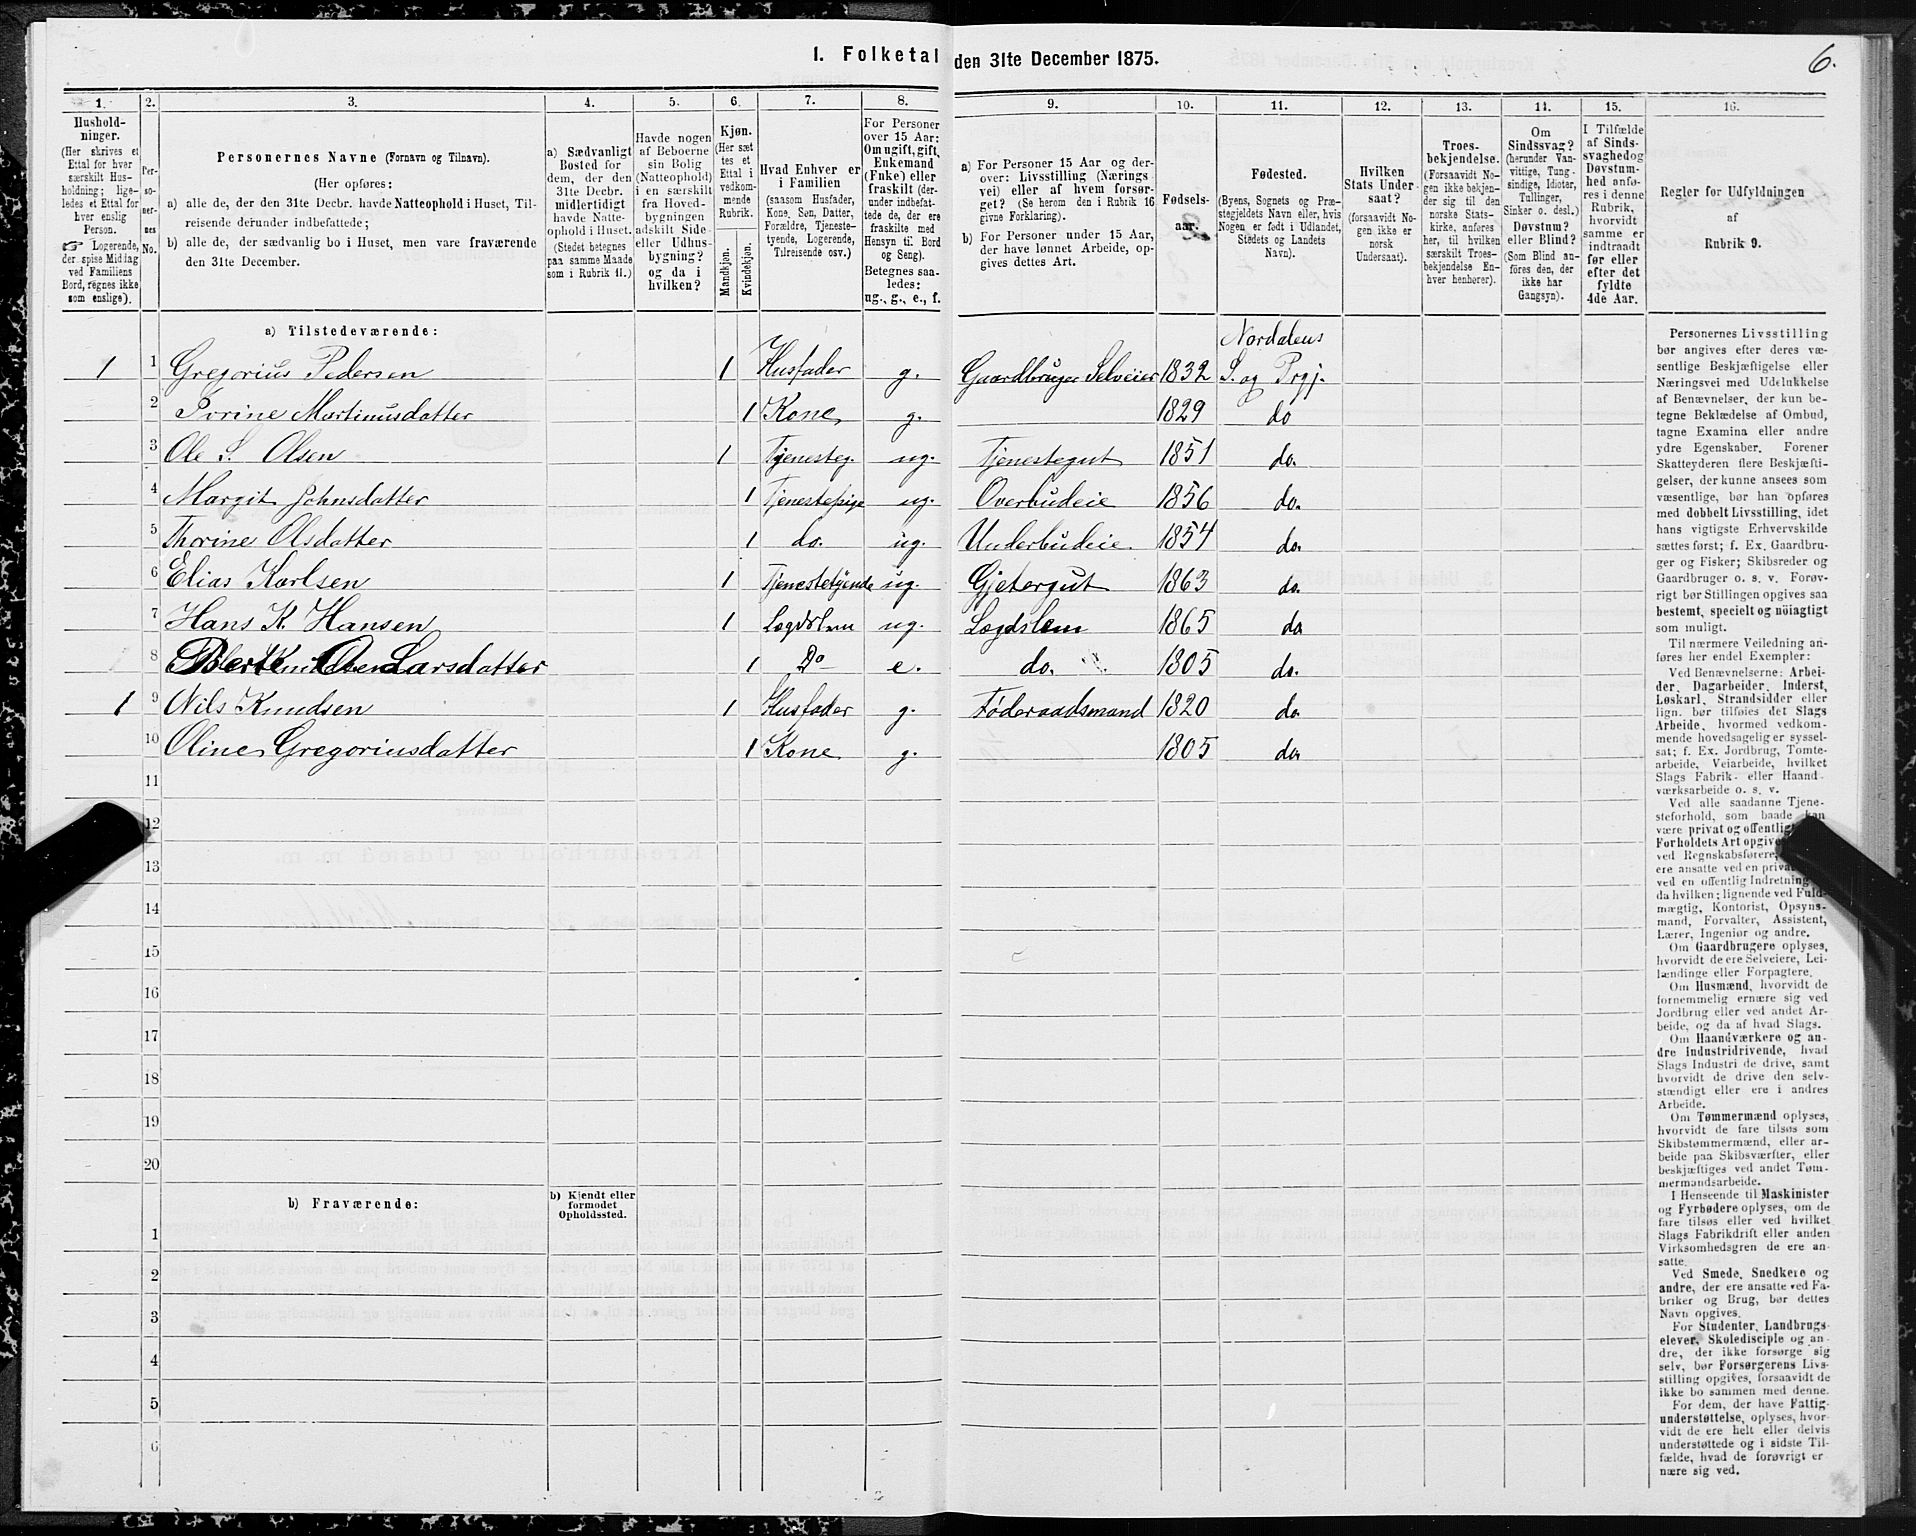 I. Folketal den 31te December 1875.
6.
1. 2. 3. 4. 5. 6. 7. 8. 9. 10. 11. 12. 13. 14. 15. 16.
Hushold-
ninger.
(Her skrives et
Ettal for hver
særskilt Hus-
holdning; lige-
ledes et Ettal for
hver enslig
Person.
☞ Logerende,
der spise Middag
ved Familiens
Bord, regnes ikke
som enslige).
Per-
so-
ner-
nes
No.
Personernes Navne (Fornavn og Tilnavn).
(Her opføres:
a) alle de, der den 31te Decbr. havde Natteophold i Huset, Til-
reisende derunder indbefattede;
b) alle de, der sædvanlig bo i Huset, men vare fraværende
den 31te December.
a) Sædvanligt
Bosted for
dem, der den
31te Decbr.
midlertidigt
havde Natte-
ophold i Huset.
(Stedet betegnes
paa samme Maade
som i Rubrik 11.)
Havde nogen
af Beboerne
sin Bolig
(Natteophold)
i en særskilt
fra Hoved-
bygningen
adskilt Side-
eller Udhus-
bygning?
og da i
hvilken?
Kjøn.
(Her sæt-
tes et
Ettal i
vedkom-
mende
Rubrik.
Mandkjøn.
Kvindekjøn.
Hvad Enhver er
i Familien
(saasom Husfader,
Kone, Søn, Datter,
Forældre, Tjeneste-
tyende, Logerende,
Tilreisende osv.)
For Personer
over 15 Aar:
Om ugift, gift,
Enkemand
(Enke) eller
fraskilt (der-
under indbefat-
tede de, der ere
fraskilte med
Hensyn til Bord
og Seng).
Betegnes saa-
ledes:
ug., g., e., f.
a) For Personer 15 Aar og der-
over: Livsstilling (Nærings-
vei) eller af hvem forsør-
get? (Se herom den i Rubrik 16
givne Forklaring).
b) For Personer under 15 Aar,
der have lønnet Arbeide, op-
gives dettes Art.
Fødsels-
aar.
Fødested.
(Byens, Sognets og Præ-
stegjeldets Navn eller, hvis
Nogen er født i Udlandet,
Stedets og Landets
Navn).
Hvilken
Stats Under-
saat?
(forsaavidt No-
gen ikke er
norsk
Undersaat).
Troes-
bekjendelse.
(Forsaavidt No-
gen ikke bekjen-
der sig til den
norske Stats-
kirke, anføres
her, til hvilken
særskilt Troes-
bekjendelse En-
hver henhører).
Om
Sindssvag?
(herunder Van-
vittige, Tung-
sindige, Idioter,
Tullinger,
Sinker o. desl.)
Døvstum?
eller Blind?
(Som Blind an-
føres den, der
ikke har
Gangsyn).
I Tilfælde
af Sinds-
svaghed og
Døvstum-
hed anfø-
res i denne
Rubrik,
hvorvidt
samme er
indtraadt
før eller
efter det
fyldte
4de Aar.
Regler for Udfyldningen
af
Rubrik 9.
a) Tilstedeværende:
Nordalens
1 1 Gregorius Pedersen 1 Husfader g. Gaardbruger Selveier 1832 S. og Prgj.
2 Perine Martinusdatter 1 Kone g. 1829 do
3 Ole S. Olsen 1 Tjenesteg. ug. Tjenestegut 1851 do.
4 Margit Johnsdatter 1 Tjenestepige ug. Overbudeie 1856 do.
5 Thorine Olsdatter 1 do. ug. Underbudeie 1854 do.
6 Elias Karlsen 1 Tjenestetyende ug. Gjetergut 1863 do.
7 Hans K. Hansen 1 Lægdslem ug. Lægdslem 1865 do
8 Larsdatter 1 Do e. do. 1805 do.
1 9 Nils Knudsen 1 Husfader g. Føderaadsmand 1820 do
10 Oline Gregoriusdatter 1 Kone g. 1805 do.
11
12
13
14
15
16
17
18
19
20
b) Fraværende:
b) Kjendt eller
formodet
Opholdssted.
1
2
3
4
5
6
Personernes Livsstilling
bør angives efter deres væ-
sentlige Beskjæftigelse eller
Næringsvei med Udelukkelse
af Benævnelser, der kun be-
tegne Beklædelse af Ombud,
tagne Examina eller andre
ydre Egenskaber. Forener
Skatteyderen flere Beskjæfti-
gelser, der kunne ansees som
væsentlige, bør han opføres
med dobbelt Livsstilling, idet
hans vigtigste Erhvervskilde
sættes først; f. Ex. Gaardbru-
ger og Fisker; Skibsreder og
Gaardbruger o. s. v. Forøv-
rigt bør Stillingen opgives saa
bestemt, specielt og nöiagtigt
som muligt.
Til nærmere Veiledning an-
føres her endel Exempler:
Ved Benævnelserne: Arbei-
der, Dagarbeider, Inderst,
Løskarl, Strandsidder eller
lign. bør tilføies det Slags
Arbeide, hvormed vedkom-
mende hovedsagelig er syssel-
sat; f. Ex. Jordbrug, Tomte-
arbeide, Veiarbeide, hvilket
Slags Fabrik- eller Haand-
værksarbeide o. s. v.
Ved alle saadanne Tjene-
steforhold, som baade kan
være privat og offentligt
Forholdets Art opgives
ved Regnskabsførere,
ere ansatte ved en privat
ved en offentlig Indretning
da hvilken; lignende ved Fuld-
mægtig, Kontorist, Opsyns-
mand, Forvalter, Assistent,
Lærer, Ingeniør og andre.
Om Gaardbrugere oplyses,
hvorvidt de ere Selveiere, Lei-
lændinge eller Forpagtere.
Om Husmænd, hvorvidt de
fornemmelig ernære sig ved
Jordbrug eller ved andet Ar-
beide, og da af hvad Slags.
Om Haandværkere og an-
dre Industridrivende, hvad
Slags Industri de drive, samt
hvorvidt de drive den selv-
stændigt eller ere i andres
Arbeide.
Om Tømmermænd oplyses,
hvorvidt de fare tilsøs som
Skibstømmermænd, eller ar-
beide paa Skibsværfter, eller
beskjæftiges ved andet Tøm-
mermandsarbeide.
I Henseende til Maskinister
og Fyrbødere oplyses, om de
fare tilsøs eller ved hvilket
Slags Fabrikdrift eller anden
Virksomhedsgren de ere an-
satte.
Ved Smede, Snedkere og
andre, der ere ansatte ved Fa-
briker og Brug, bør dettes
Navn opgives.
For Studenter, Landbrugs-
elever, Skoledisciple og an-
dre, der ikke forsørge sig
selv, bør Forsørgerens Livs-
stilling opgives, forsaavidt de
ikke bo sammen med denne.
For dem, der have Fattig-
understøttelse, oplyses, hvor-
vidt de ere helt eller delvis
understøttede og i sidste Til-
fælde, hvad de forøvrigt er-
nære sig ved.